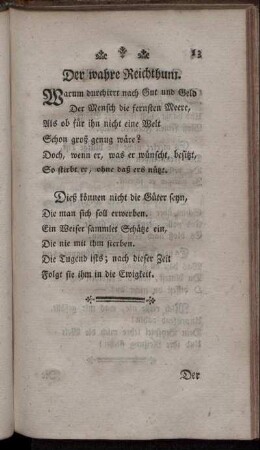 13
Der wahre Reichthum.
Warum durchirrt nach Gut und Geld
Der Mensch die fernsten Meere,
Als ob für ihn nicht eine Welt
Schon groß genug wäre?
Doch, wenn er, was er wünscht, besitzt,
So stirbt er, ohne daß ers nützt.
Dieß können nicht die Güter seyn,
Die man sich soll erwerben.
Ein Weiser sammlet Schätze ein,
Die nie mit ihm sterben.
Die Tugend ists; nach dieser Zeit
Folgt sie ihm in die Ewigkeit.
Der